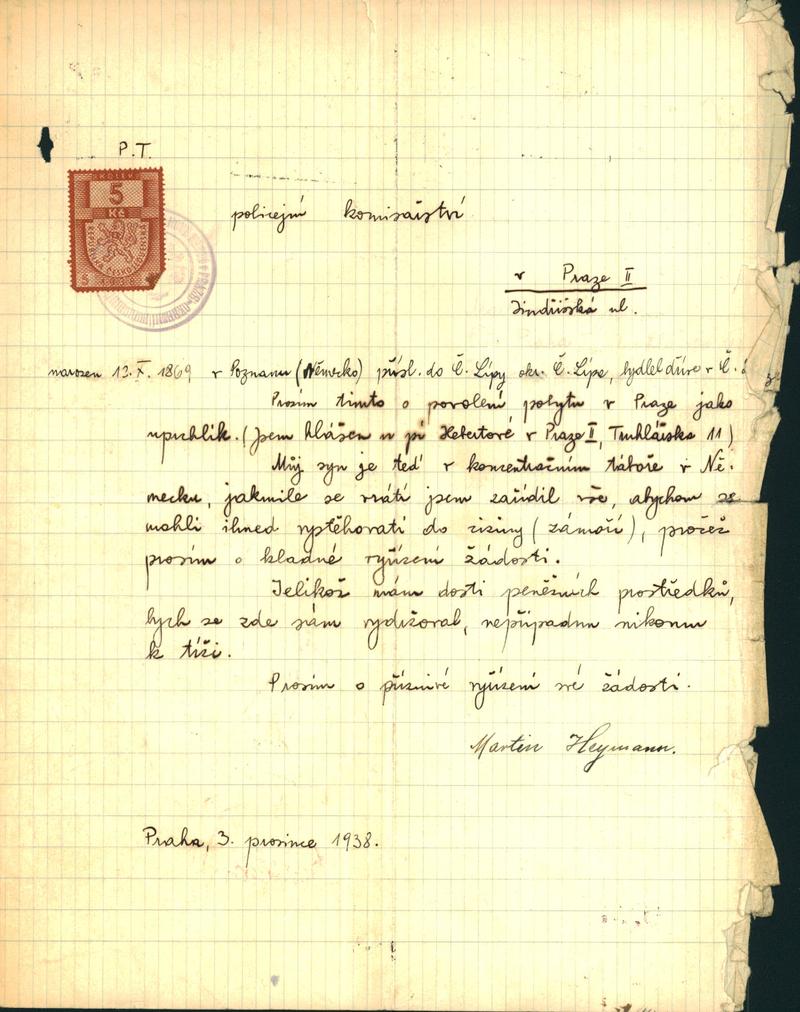 P.T.
KOLEK
5
Kč
policejní komisařství
v Praze II
Jindřišská ul.
narozen 13. X. 1869 v Poznanu (Německo) přísl. do Č. Lípy okr. Č. Lípa, bydlel dříve v Č.
Prosím tímto o povolení pobytu v Praze jako
uprchlík. (Jsem hlášen u pí Hebertové v Praze II, Truhlářská 11)
Můj syn je teď v koncentračním táboře v Ně-
mecku, jakmile se vrátí jsem zařídil vše, abychom se
mohli ihned vystěhovati do ciziny (zámoří), pročež
prosím o kladné vyřízení žádosti.
Jelikož mám dosti peněžních prostředků,
bych se zde sám vydržoval, nepřipadnu nikomu
k tíži.
Prosím o příznivé vyřízení své žádosti.
Martin Heymann.
Praha, 3. prosince 1938.